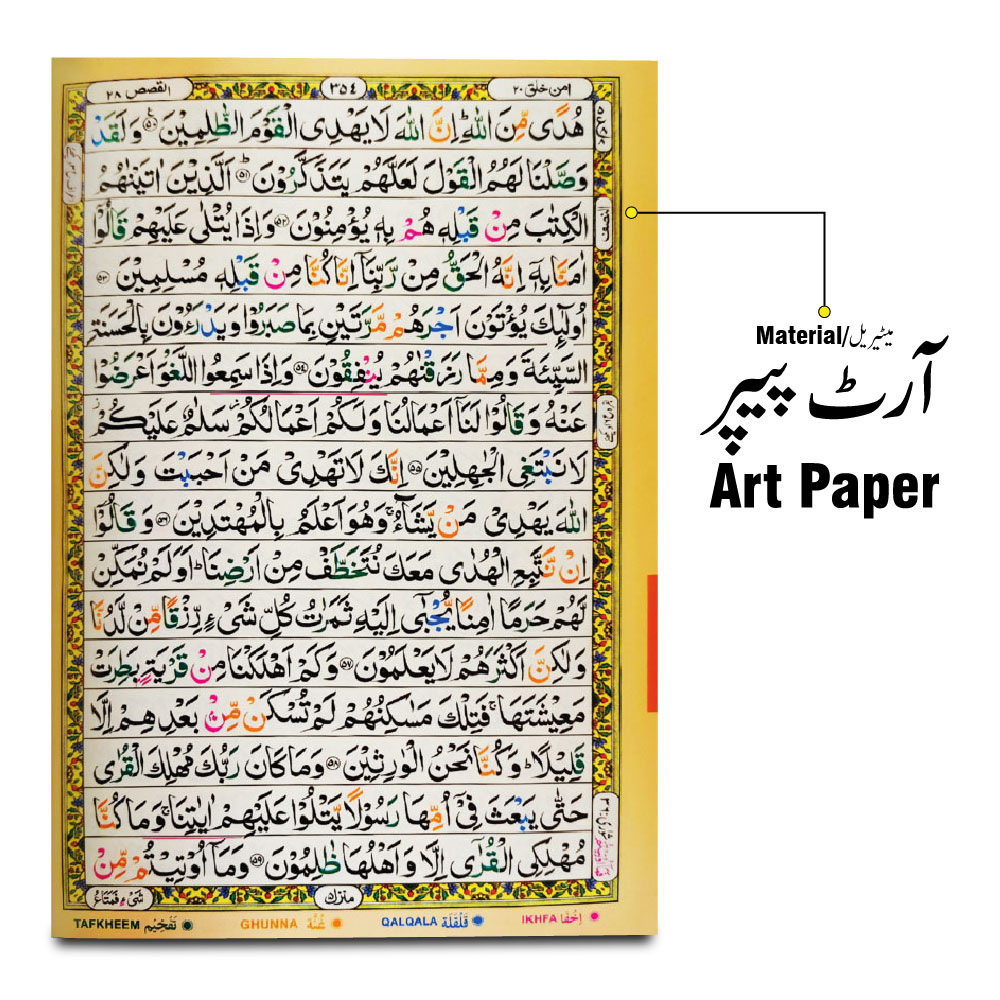 امن خلق ٢٠
٣٥٤
القصص ٢٨
هُدًى مِّنَ اللّٰهِ ؕ اِنَّ اللّٰهَ لَا يَهْدِى الْقَوْمَ الظّٰلِمِيْنَ ۵۰ وَلَقَدْ
وَصَّلْنَا لَهُمُ الْقَوْلَ لَعَلَّهُمْ يَتَذَكَّرُوْنَ ؕ ۵۱ اَلَّذِيْنَ اٰتَيْنٰهُمُ
الْكِتٰبَ مِنْ قَبْلِهٖ هُمْ بِهٖ يُؤْمِنُوْنَ ۵۲ وَاِذَا يُتْلٰى عَلَيْهِمْ قَالُوْٓا
النصف
اٰمَنَّا بِهٖٓ اِنَّهُ الْحَقُّ مِنْ رَّبِّنَآ اِنَّا كُنَّا مِنْ قَبْلِهٖ مُسْلِمِيْنَ ۵۳
اُولٰٓئِكَ يُؤْتَوْنَ اَجْرَهُمْ مَّرَّتَيْنِ بِمَا صَبَرُوْا وَيَدْرَءُوْنَ بِالْحَسَنَةِ
السَّيِّئَةَ وَمِمَّا رَزَقْنٰهُمْ يُنْفِقُوْنَ ۵۴ وَاِذَا سَمِعُوا اللَّغْوَ اَعْرَضُوْا
عَنْهُ وَقَالُوْا لَنَآ اَعْمَالُنَا وَلَكُمْ اَعْمَالُكُمْ سَلٰمٌ عَلَيْكُمْ
لَا نَبْتَغِى الْجٰهِلِيْنَ ۵۵ اِنَّكَ لَا تَهْدِىْ مَنْ اَحْبَبْتَ وَلٰكِنَّ
اللّٰهَ يَهْدِىْ مَنْ يَّشَآءُ ۚ وَهُوَ اَعْلَمُ بِالْمُهْتَدِيْنَ ۵۶ وَقَالُوْٓا
اِنْ نَّتَّبِعِ الْهُدٰى مَعَكَ نُتَخَطَّفْ مِنْ اَرْضِنَا ؕ اَوَلَمْ نُمَكِّنْ
لَّهُمْ حَرَمًا اٰمِنًا يُّجْبٰٓى اِلَيْهِ ثَمَرٰتُ كُلِّ شَىْءٍ رِّزْقًا مِّنْ لَّدُنَّا
وَلٰكِنَّ اَكْثَرَهُمْ لَا يَعْلَمُوْنَ ۵۷ وَكَمْ اَهْلَكْنَا مِنْ قَرْيَةٍۭ بَطِرَتْ
مَعِيْشَتَهَا ۚ فَتِلْكَ مَسٰكِنُهُمْ لَمْ تُسْكَنْ مِّنْۢ بَعْدِهِمْ اِلَّا
قَلِيْلًا ؕ وَكُنَّا نَحْنُ الْوٰرِثِيْنَ ۵۸ وَمَا كَانَ رَبُّكَ مُهْلِكَ الْقُرٰى
حَتّٰى يَبْعَثَ فِىْٓ اُمِّهَا رَسُوْلًا يَّتْلُوْا عَلَيْهِمْ اٰيٰتِنَا ۚ وَمَا كُنَّا
مُهْلِكِى الْقُرٰٓى اِلَّا وَاَهْلُهَا ظٰلِمُوْنَ ۵۹ وَمَآ اُوْتِيْتُمْ مِّنْ
شَىْءٍ فَمَتَاعُ
اِخْفَا IKHFA
قَلْقَلَة QALQALA
غُنَّة GHUNNA
تَفْخِيْم TAFKHEEM
Material/میٹیریل
آرٹ پیپر
Art Paper